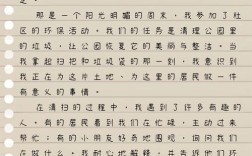 那是一个阳光明媚的周末，我参加了社
区的环保活动。我们的任务是清理公园里
的垃圾，让公园恢复它的美丽与整洁。当
我拿起扫把和垃圾袋的那一刻，我意识到
我正在为这片土地，为这里的居民做一件
有意义的事情。
在清扫的过程中，我遇到了许多有趣的
人。有的居民看到我们在忙碌，主动过来
帮忙；有的小朋友好奇地围观，询问我们
在做什么。我耐心地解释，并告诉他们环